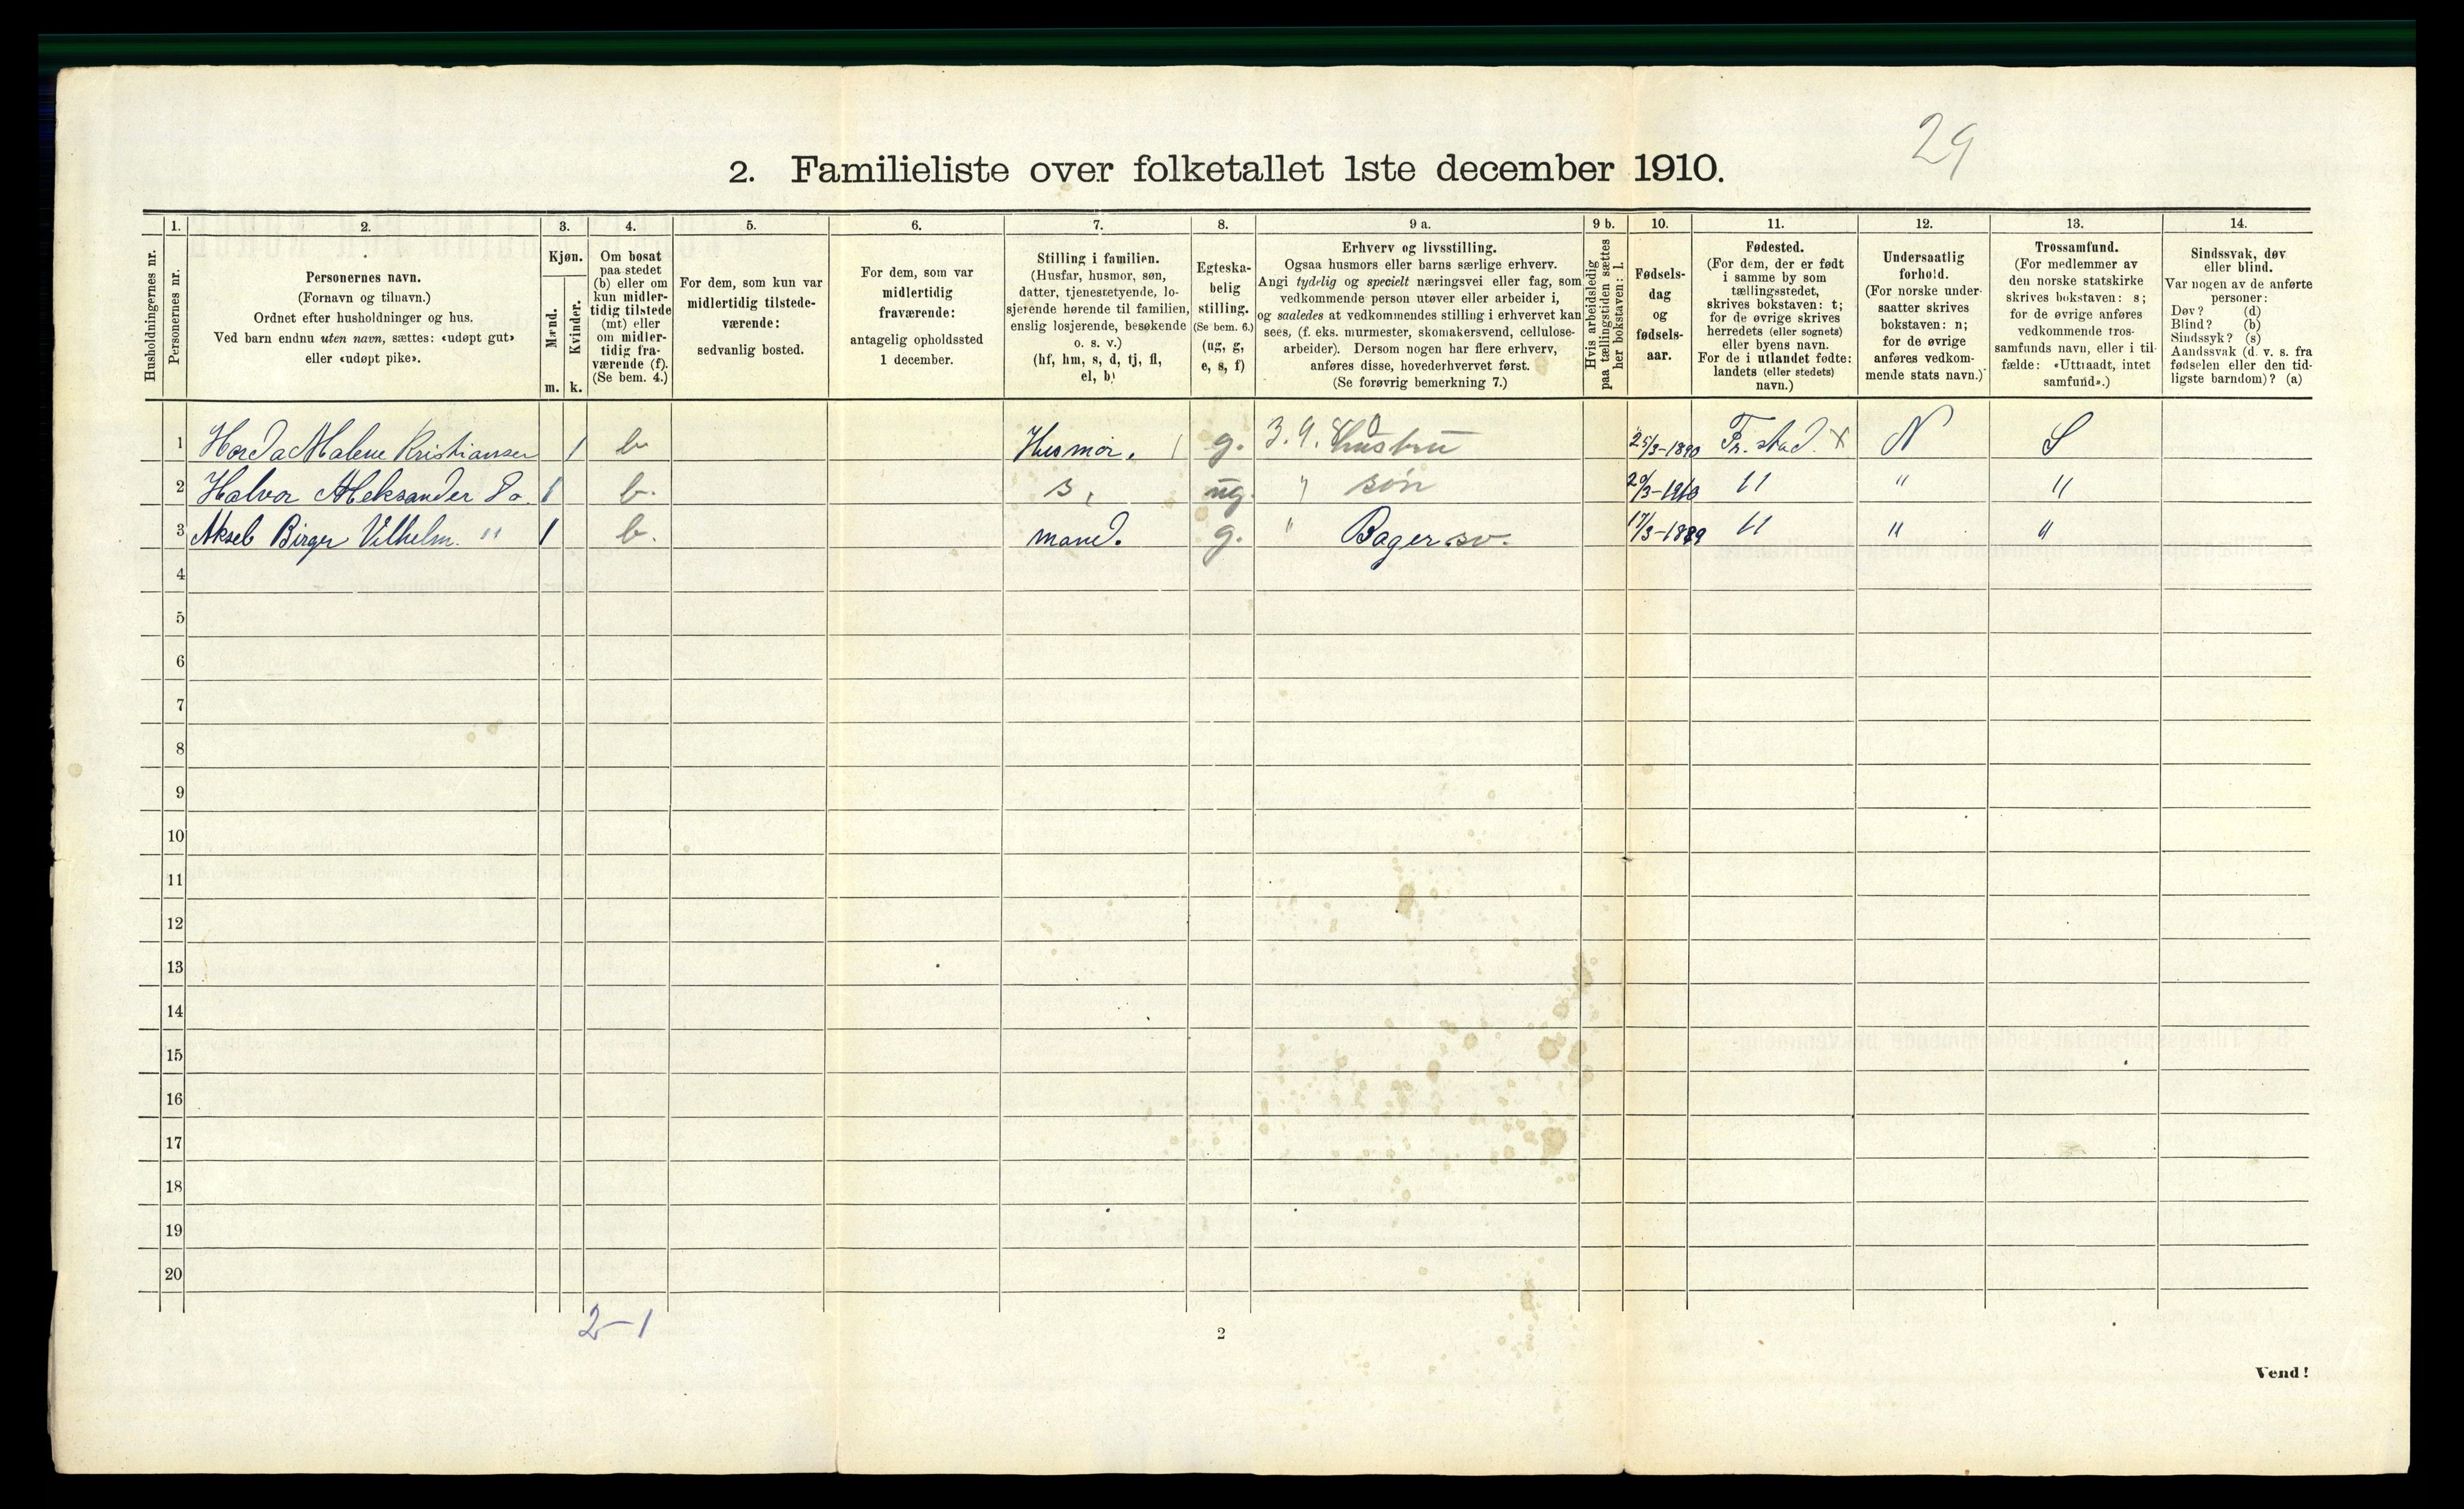 29
2. Familieliste over folketallet 1ste december 1910.
Husholdningernes nr.
1. Personernes nr.
2. Personernes navn. (Fornavn og tilnavn.) Ordnet efter husholdninger og hus. Ved barn endnu uten navn, sættes: «udøpt gut» eller «udøpt pike».
3. Kjøn. Mænd. m. Kvinder. k.
4. Om bosat paa stedet (b) eller om kun midlertidig tilstede (mt) eller om midlertidig fraværende (f). (Se bem. 4.)
5. For dem, som kun var midlertidig tilstedeværende: sedvanlig bosted.
6. For dem, som var midlertidig fraværende: antagelig opholdssted 1 december.
7. Stilling i familien. (Husfar, husmor, søn, datter, tjenestetyende, losjerende hørende til familien, enslig losjerende, besøkende o. s. v.) (hf, hm, s, d, tj, fl, el, b)
8. Egteskabelig stilling. (Se bem. 6.) (ug, g, e, s, f)
9 a. Erhverv og livsstilling. Ogsaa husmors eller barns særlige erhverv. Angi tydelig og specielt næringsvei eller fag, som vedkommende person utøver eller arbeider i, og saaledes at vedkommendes stilling i erhvervet kan sees, (f. eks. murmester, skomakersvend, cellulosearbeider). Dersom nogen har flere erhverv, anføres disse, hovederhvervet først. (Se forøvrig bemerkning 7.)
9 b. Hvis arbeidsledig paa tællingstiden sættes her bokstaven: l.
10. Fødselsdag og fødselsaar.
11. Fødested. (For dem, der er født i samme by som tællingsstedet, skrives bokstaven: t; for de øvrige skrives herredets (eller sognets) eller byens navn. For de i utlandet fødte: landets (eller stedets) navn.)
12. Undersaatlig forhold. (For norske undersaatter skrives bokstaven: n; for de øvrige anføres vedkommende stats navn.)
13. Trossamfund. (For medlemmer av den norske statskirke skrives bokstaven: s; for de øvrige anføres vedkommende trossamfunds navn, eller i tilfælde: «Uttraadt, intet samfund».)
14. Sindssvak, døv eller blind. Var nogen av de anførte personer: Døv? (d) Blind? (b) Sindssyk? (s) Aandssvak (d. v. s. fra fødselen eller den tidligste barndom)? (a)
1 Malene Kristiansen 1 b Husmor. g. Hustru 25/3-1890 Fr.stad. X N S
2 Halvor Aleksander Do. 1 b. s, ug. " søn 1910 " " "
3 Aksel Birger Vilhelm. " 1 b. mand. g. " Bagersv. 17/3-1889 " " "
4
5
6
7
8
9
10
11
12
13
14
15
16
17
18
19
20
2-1
2
Vend!